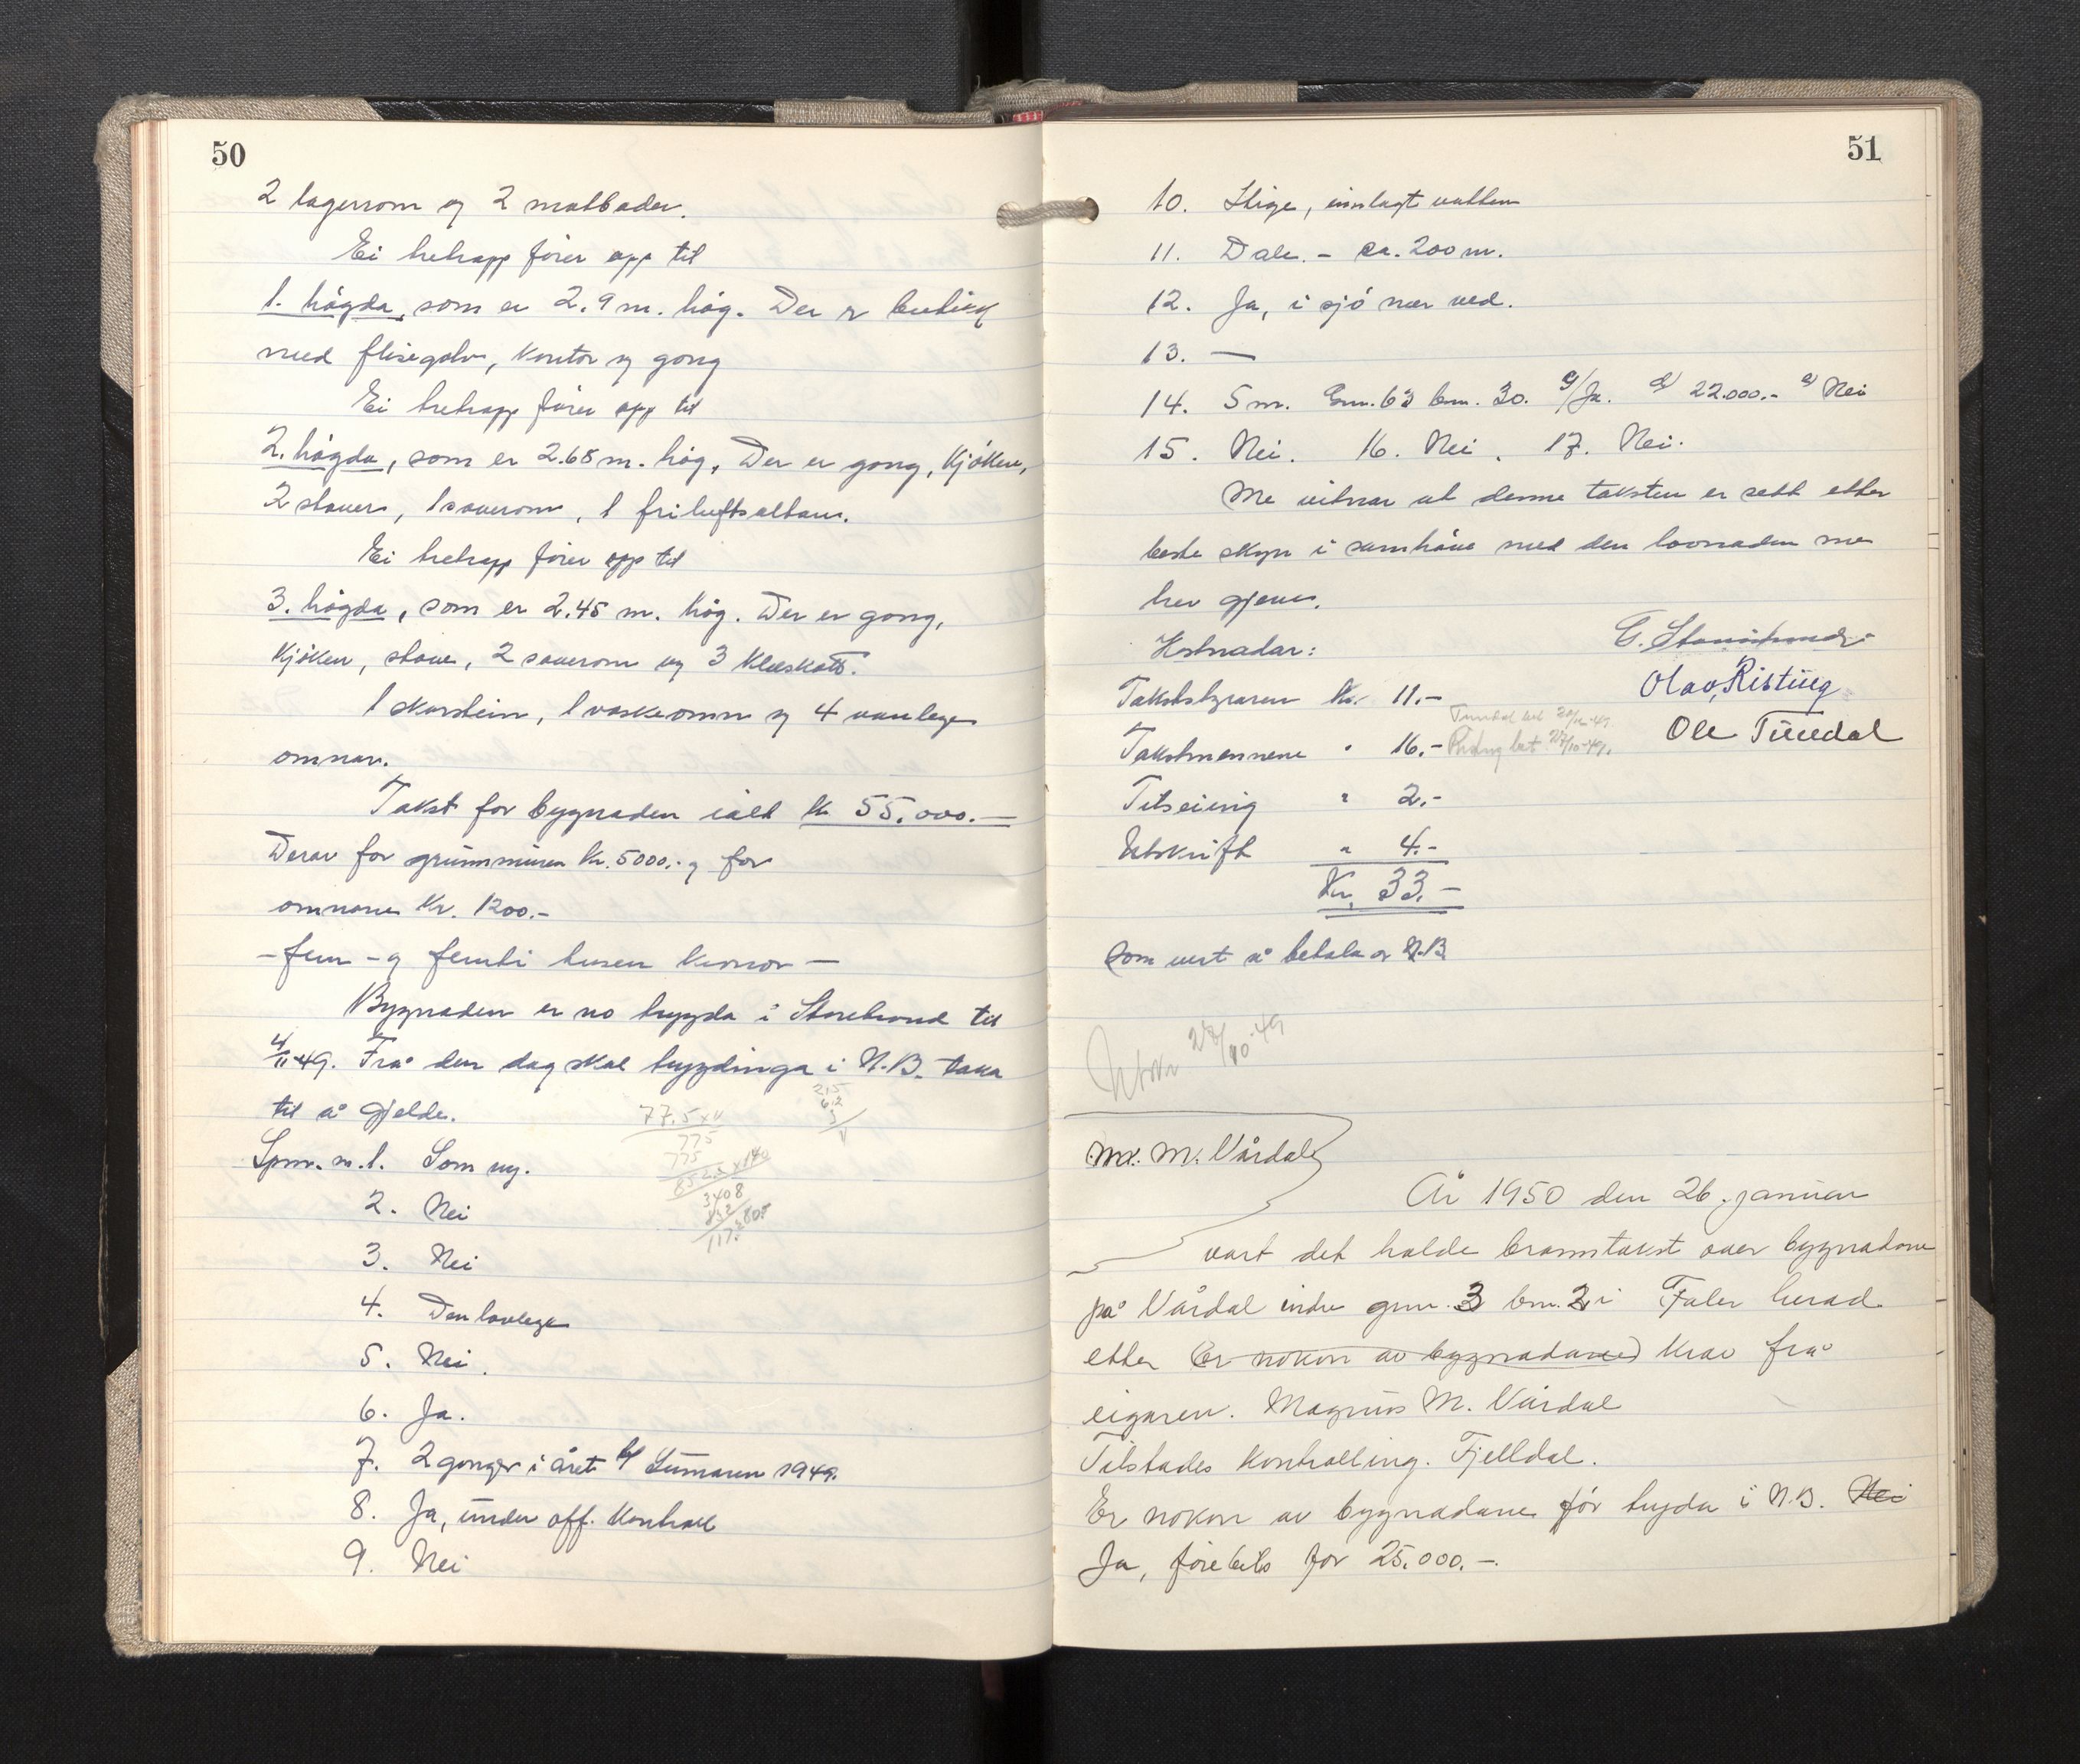 50
2 lagerrom og 2 matboder.
Ei tretrapp fører opp til
1. høgda, som er 2.9 m. høg. Der er butikk
med flisegolv, kontor og gong
Ei tretrapp fører opp til
2. høgda, som er 2.65 m. høg. Der er gong, kjøken,
2 stover, 1 soverom, 1 friluftsaltan.
Ei tretrapp fører opp til
3. høgda, som er 2.45 m. høg. Der er gong,
kjøken, stove, 2 soverom og 3 kleskott.
1 skorstein, 1 vaskeomn og 4 vanlege
omnar.
Takst for bygnaden ialt kr 55.000.—
Derav for grunnmuren kr. 5000.- og for
omnane kr. 1200.-
- fem - og femti tusen kronor —
Bygnaden er no trygda i Storebrand til
4/11-49. Frå den dag skal trygdinga i N.B. taka
til å gjelde.
Spm. nr. 1. Som ny.
2. Nei
3. Nei
4. Den lovlege
5. Nei.
6. Ja.
7. 2 gonger i året b/ Sumaren 1949.
8. Ja, under off. kontroll
9. Nei
77.5 x 11
775
775
51
10. Stige, innlagt vatten
11. Dale. - ca. 200 m.
12. Ja, i sjø nær ved.
13. —
14. 5 m. Gnr. 63 bnr. 30. Ja. 22.000.- Nei
15. Nei. 16. Nei. 17. Nei.
Me vitnar at denne taksten er sett etter
beste skyn i samhøve med den lovnaden me
hev gjeve.
Kostnadar:
Takststyraren kr. 11.-
Olav Risting
Takstmennene " 16.-
Ole Tundal
Tilseiing " 2.-
Utskrift " 4.-
Kr. 33.-
som vert å betala av N.B.
Utskr 28/10-49
M. Vårdal
År 1950 den 26. januar
vart det halde branntakst over bygnadene
på Vårdal indre gnr. 3 bnr. 2 i Fjaler herad
etter (Er nokon av bygnadane) krav frå
eigaren. Magnus M. Vårdal
Tilstades kontrolling. Fjelldal.
Er nokon av bygnadane før trygda i N.B. Nei
Ja, førebils for 25.000.-.